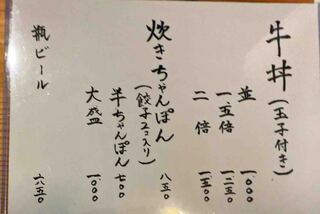 牛丼(玉子付き)
並 一,〇〇〇
一,五倍 一,二五〇
二倍 一,五〇〇
炊きちゃんぽん 八五〇
(餃子2コ入り)
半ちゃんぽん 七〇〇
大盛 一,〇〇〇
瓶ビール 六五〇